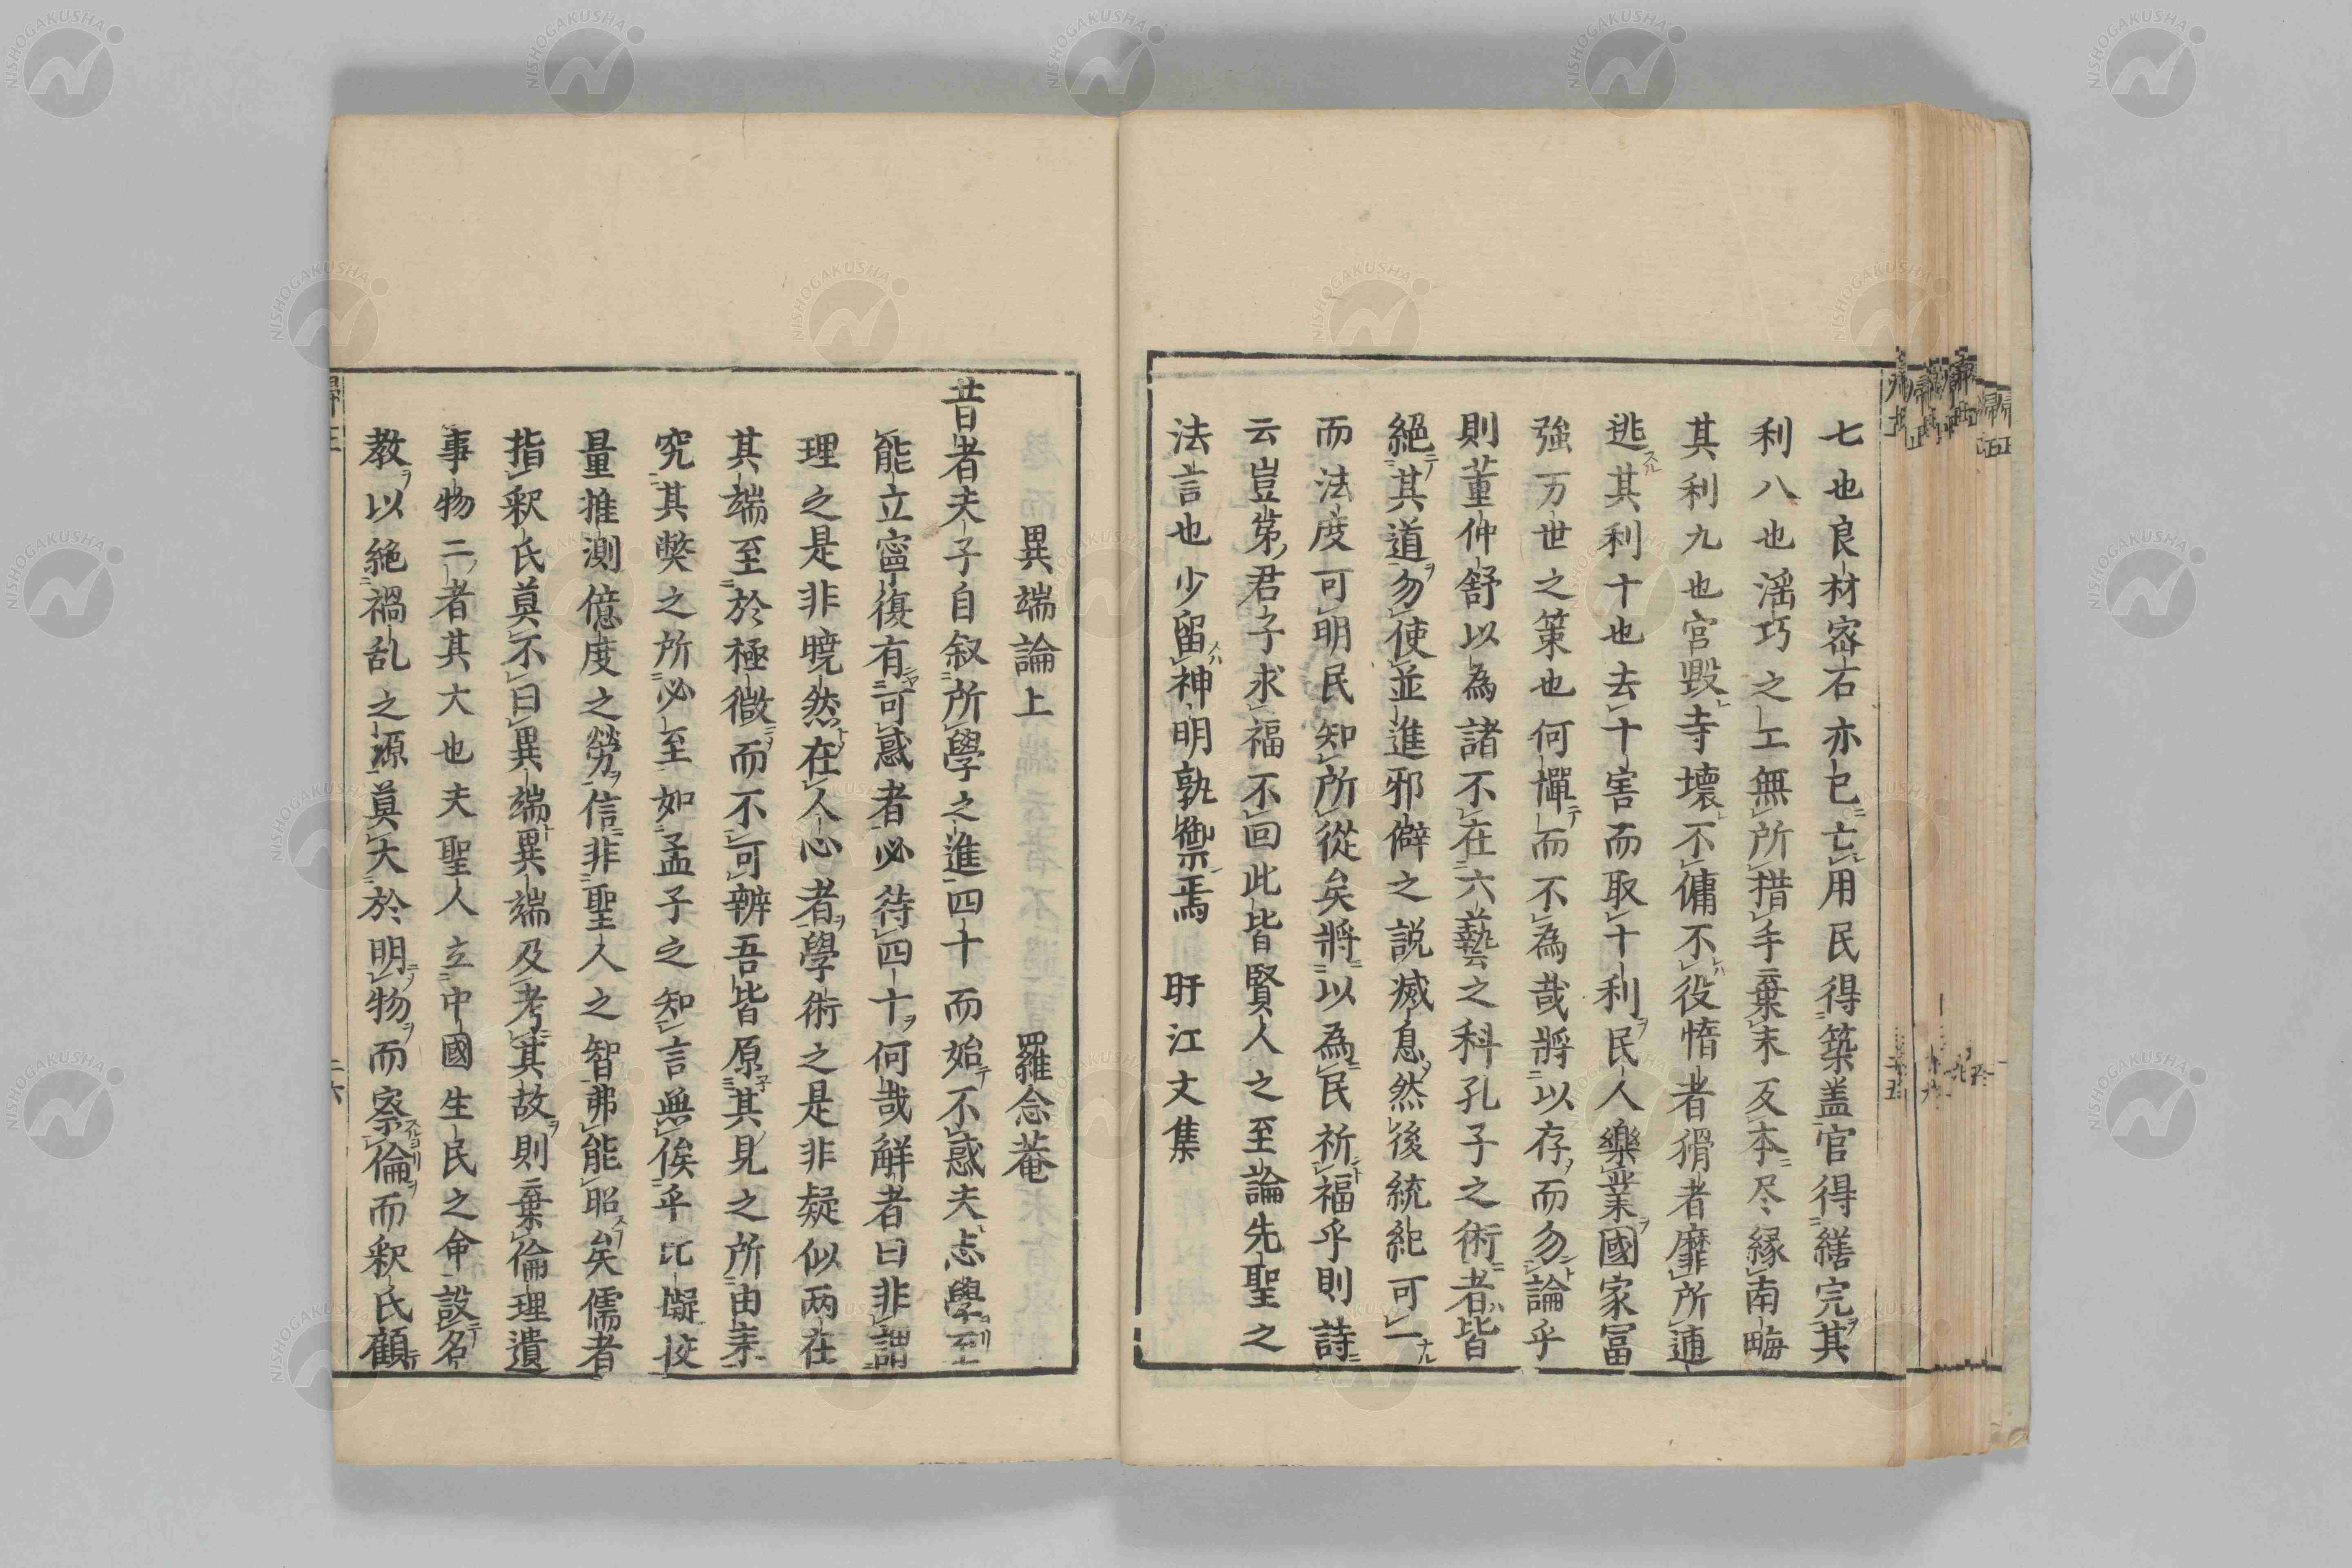 七也良材宻石亦已亡用民得築盖官得繕完其
利八也滛巧之工無所措手棄末反本尽縁南畮
其利九也官毀寺壞不傭不役惰者猾者靡所逋
逃其利十也去十害而取十利民人樂業國家冨
強万世之策也何憚而不為哉將以存而勿論乎
則董仲舒以為諸不在六藝之科孔子之術者皆
絕其道勿使並進邪僻之説滅息然後統紀可一
而法度可明民知所從矣將以為民祈福乎則詩
云豈弟君子求福不回此皆賢人之至論先聖之
法言也少留神明孰禦焉　旴江文集
異端論上　羅念菴
昔者夫子自叙所學之進四十而始不惑夫志學至
能立寧復有可惑者必待四十何哉觧者曰非謂
理之是非曉然在人心者學術之是非疑似两在
其端至於極微而不可辨吾皆原其見之所由耒
究其獘之所必至如孟子之知言無俟乎比擬挍
量推測億度之勞信非聖人之智弗能昭矣儒者
指釈氏莫不曰異端異端及考其故則棄倫理遺
事物二者其大也夫聖人立中國生民之命設名
教以絕禍乱之源莫大於明物而察倫而釈氏顧
NISHOGAKUSHA